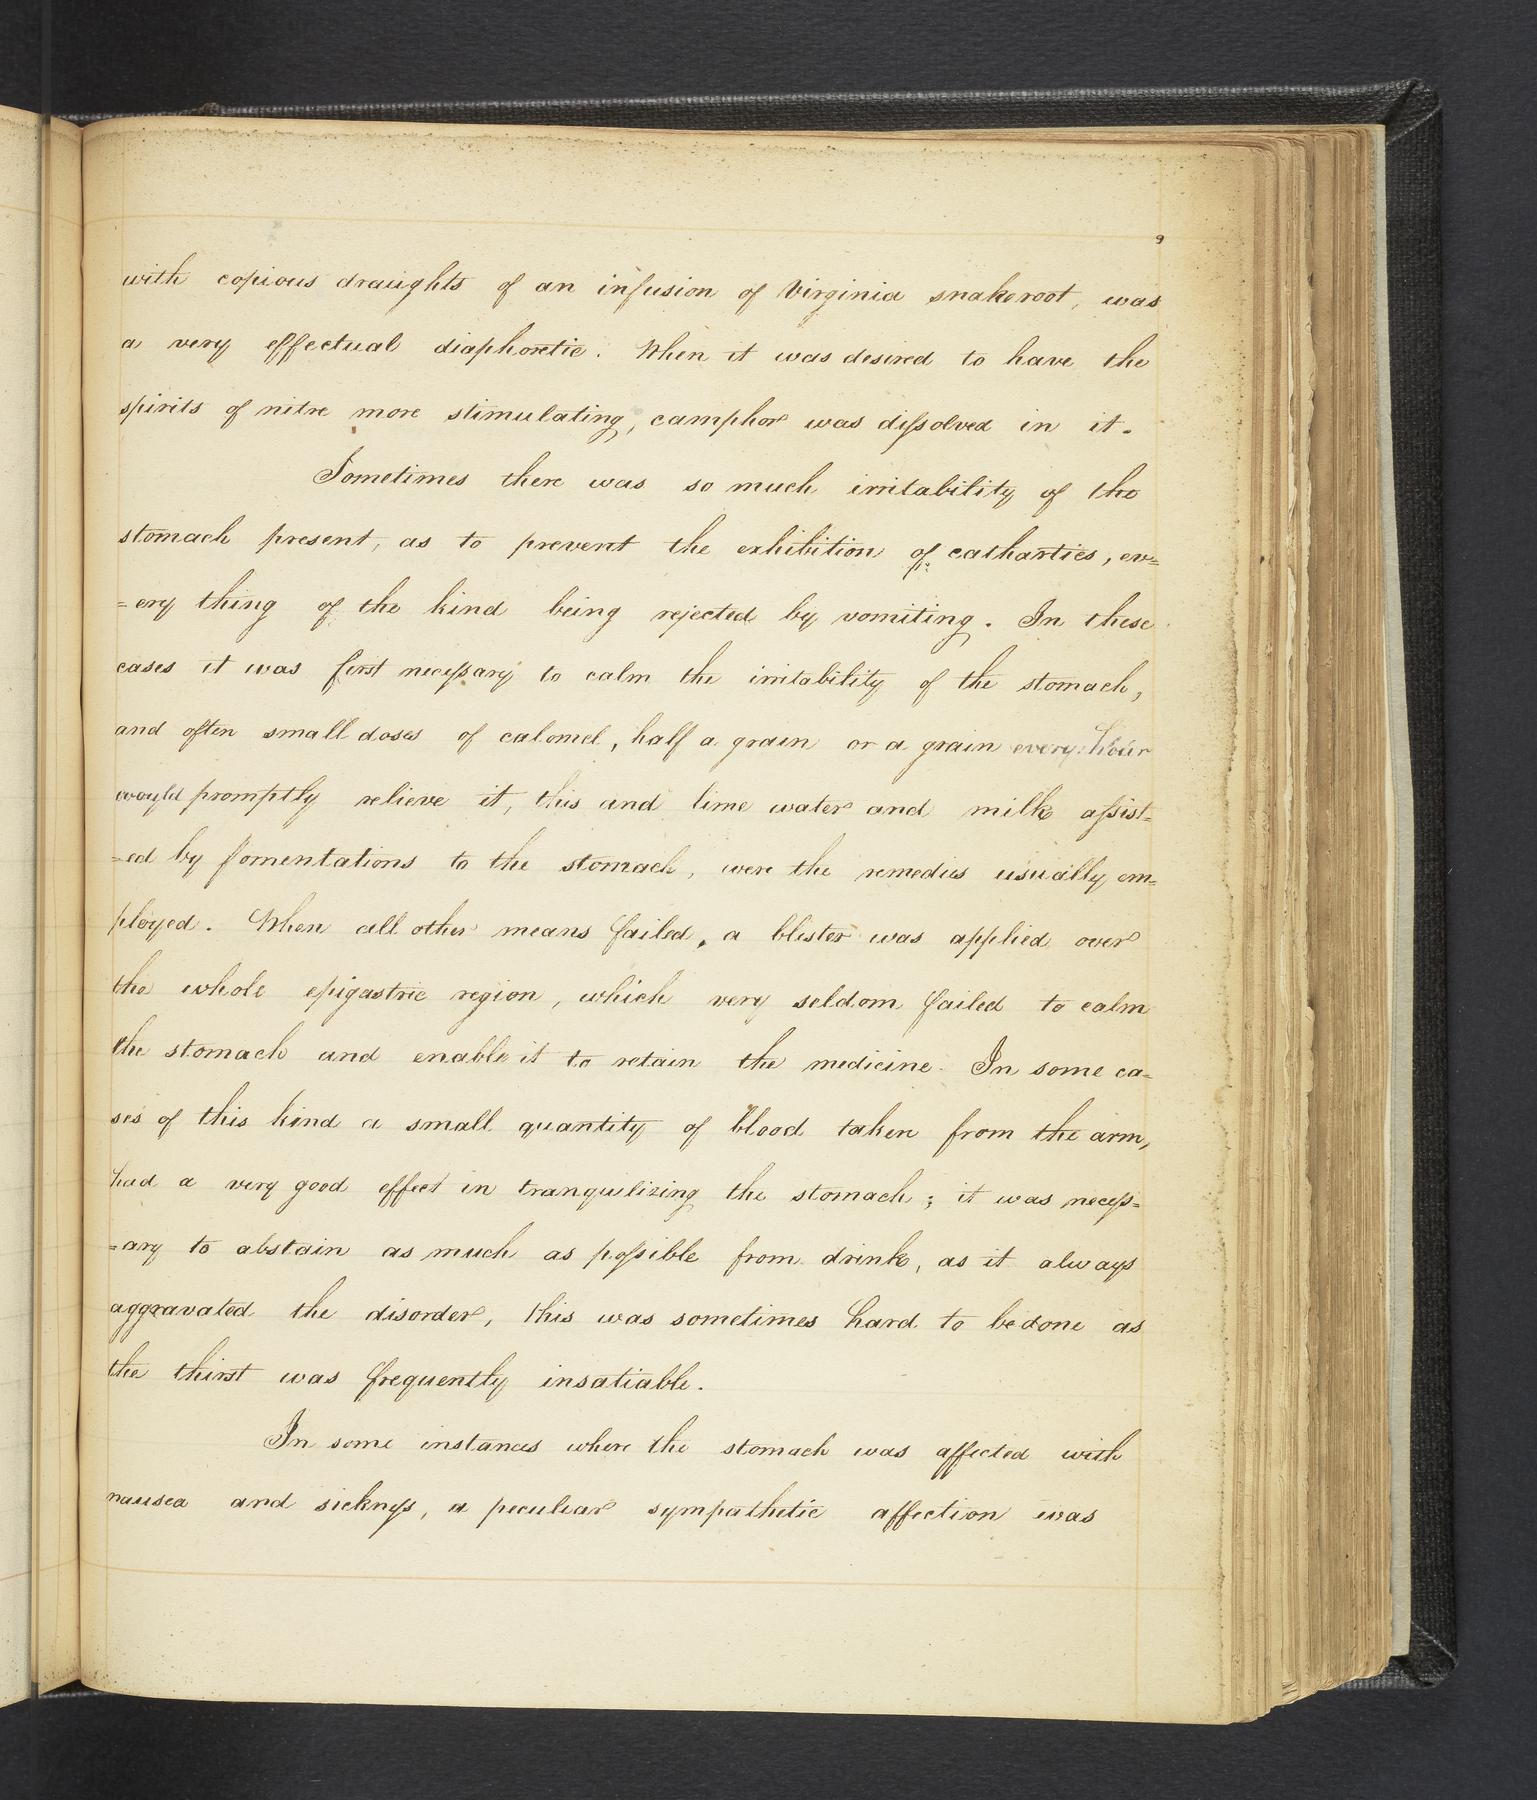 9
with copious draughts of an infusion of Virginia snakeroot, was
a very effectual diaphoretic. When it was desired to have the
spirits of nitre more stimulating, camphor was dissolved in it.
Sometimes there was so much irritability of the
stomach present, as to prevent the exhibition of cathartics, ev=
=ery thing of the kind being rejected by vomiting. In these
cases it was first necessary to calm the irritability of the stomach,
and often small doses of calomel, half a grain or a grain every hour
would promptly relieve it, this and lime water and milk assist=
=ed by fomentations to the stomach, were the remedies usually em=
ployed. When all other means failed, a blister was applied over
the whole epigastric region, which very seldom failed to calm
the stomach and enable it to retain the medicine. In some ca=
ses of this kind a small quantity of blood taken from the arm,
had a very good effect in tranquilizing the stomach; it was necess=
=ary to abstain as much as possible from drink, as it always
aggravated the disorder, this was sometimes hard to be done as
the thirst was frequently insatiable.
In some instances where the stomach was affected with
nausea and sickness, a peculiar sympathetic affection was